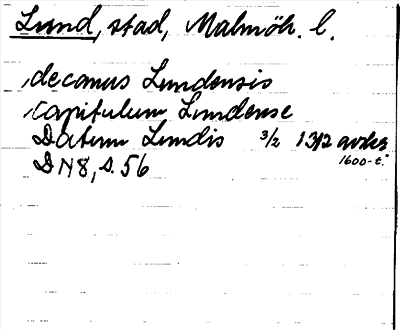 Lund, stad, Malmöh. l.
, decanus Lundensis
, capitulum Lundense
Datum Lundis 3/2 1312 avskr
1600-t.
DN 8, s. 56